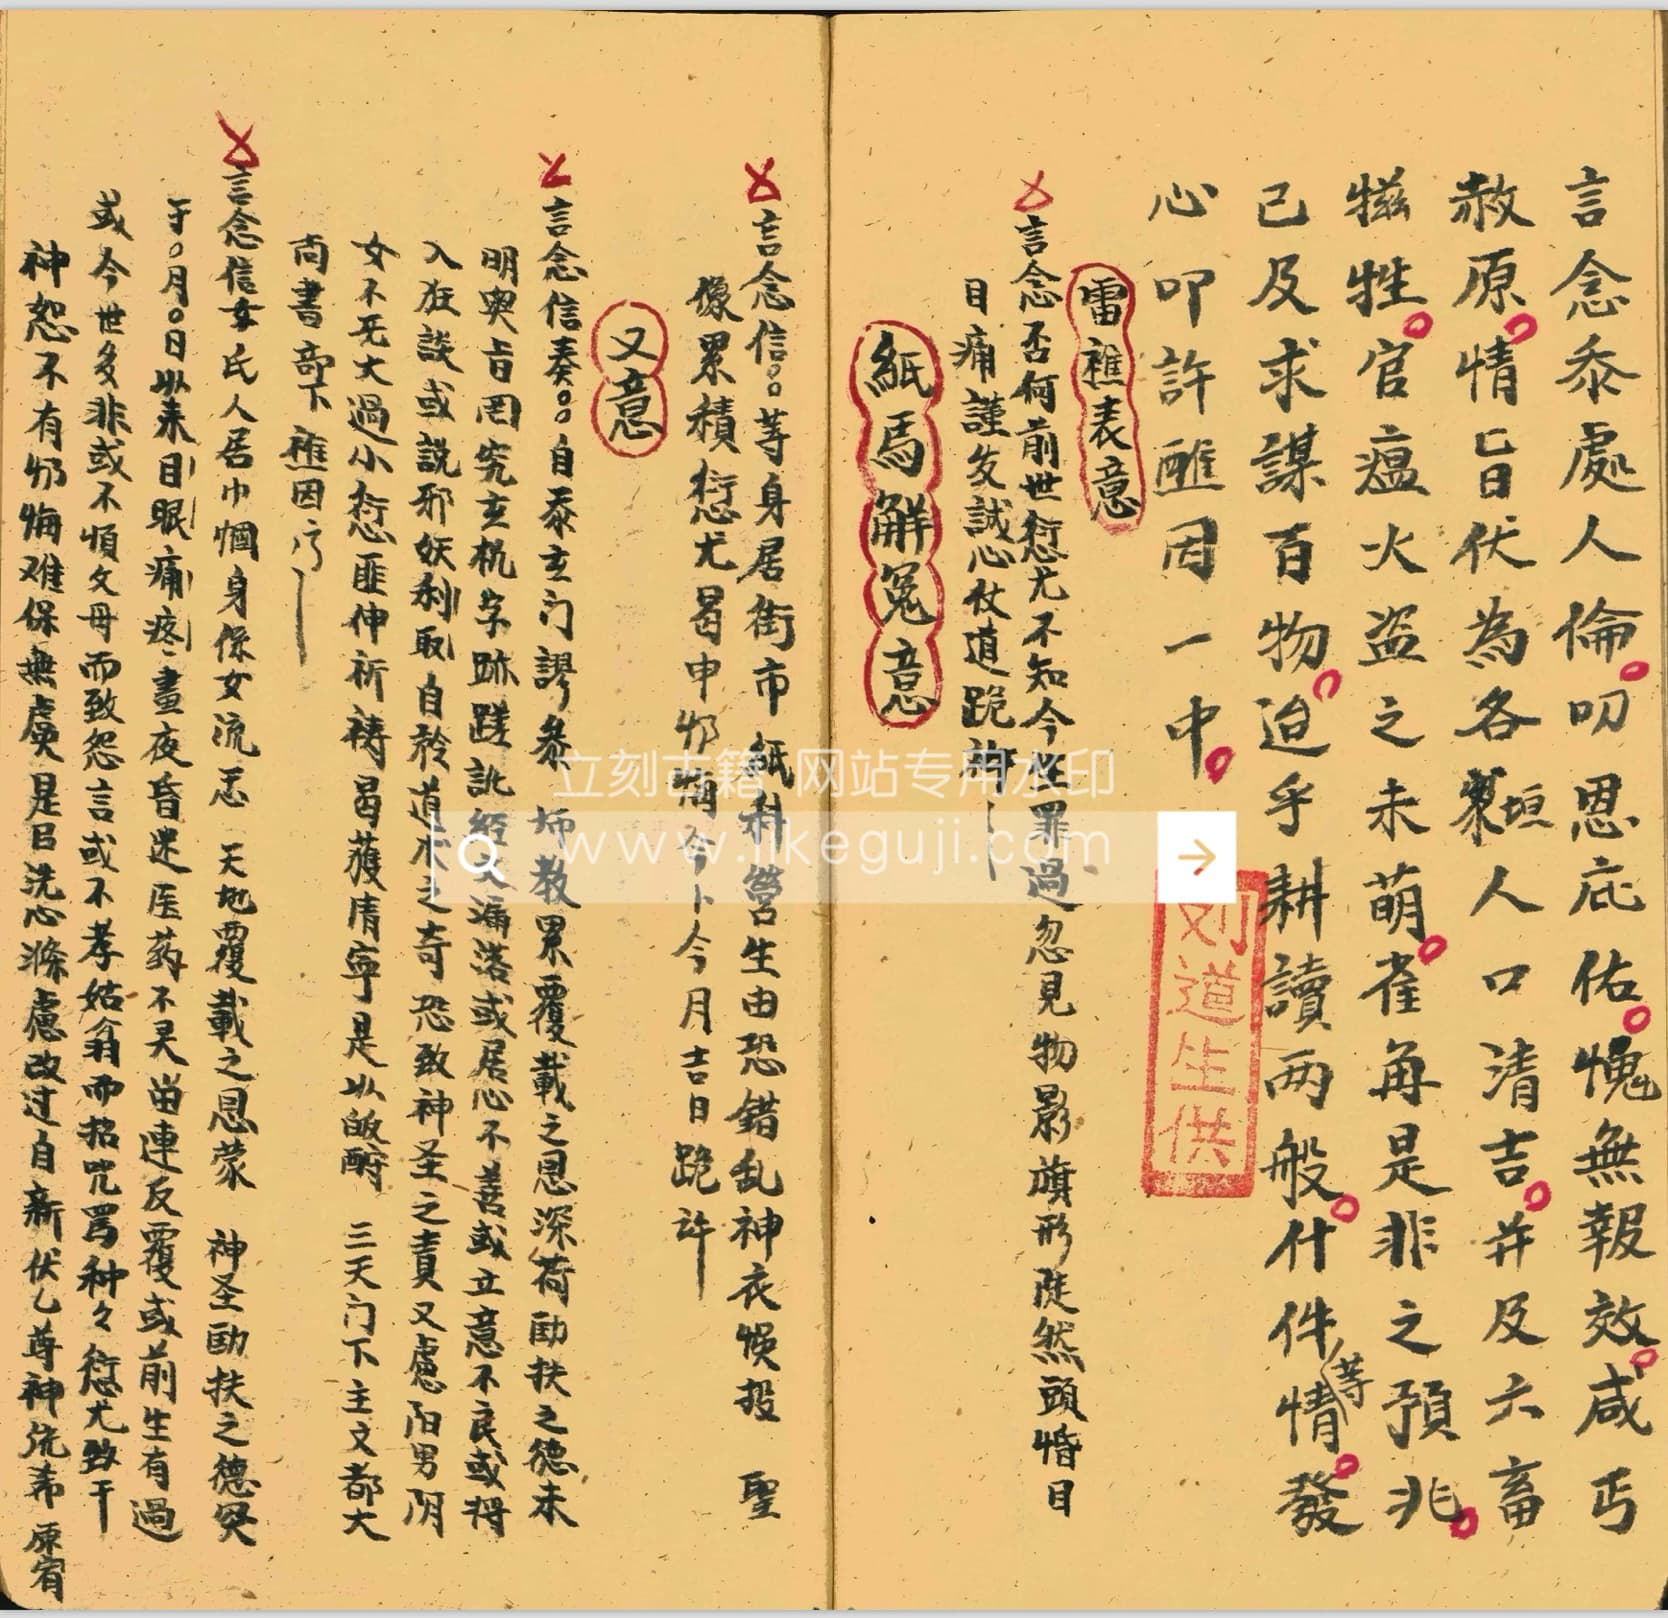 言念忝處人倫叨恩庇佑愧無報效咸丐
赦原情旨伏為各垣人口清吉并及六畜
牲官瘟火盜之未萌雀角是非之預兆
已及求謀百物迨乎耕讀兩般什件等情發
心叩許醮因一中
雷醮表意
言念否何前世愆尤不知今生罪過忽見物影旗形陡然頭惛目
目痛謹发誠心仗道跪許
紙馬解冤意
言念信〇〇等身居街市紙科營生由恐錯乱神衣悞投 聖
像累積愆尤曷申今卜今月吉日跪許
又意
言念信奏〇〇自忝玄门謬叅 师教累覆載之恩深荷扶之德未
明奧旨罔究玄机字跡蹉訛經文漏落或居心不善或立意不良或将
入狂談或説邪妖利取自於道水之奇恐致神圣之責又慮阳男阴
女不无大過小愆匪伸祈禱曷獲清寧是以皈酧 三天门下主文都大
尚書 醮因
言念信女氏人居巾幗身係女流忝 天地覆載之恩蒙 神圣扶之德
于〇月〇日以来目眼痛疼晝夜昏迷医药不灵畄連反覆或前生有過
或今世多非或不順父母而致怨言或不孝姑翁而招咒罵种々愆尤致干
神恕不有难保無虞是日洗心滌慮改过自新伏乞尊神原宥
刘道生供
立刻古籍 网站专用水印
www.likeguji.com